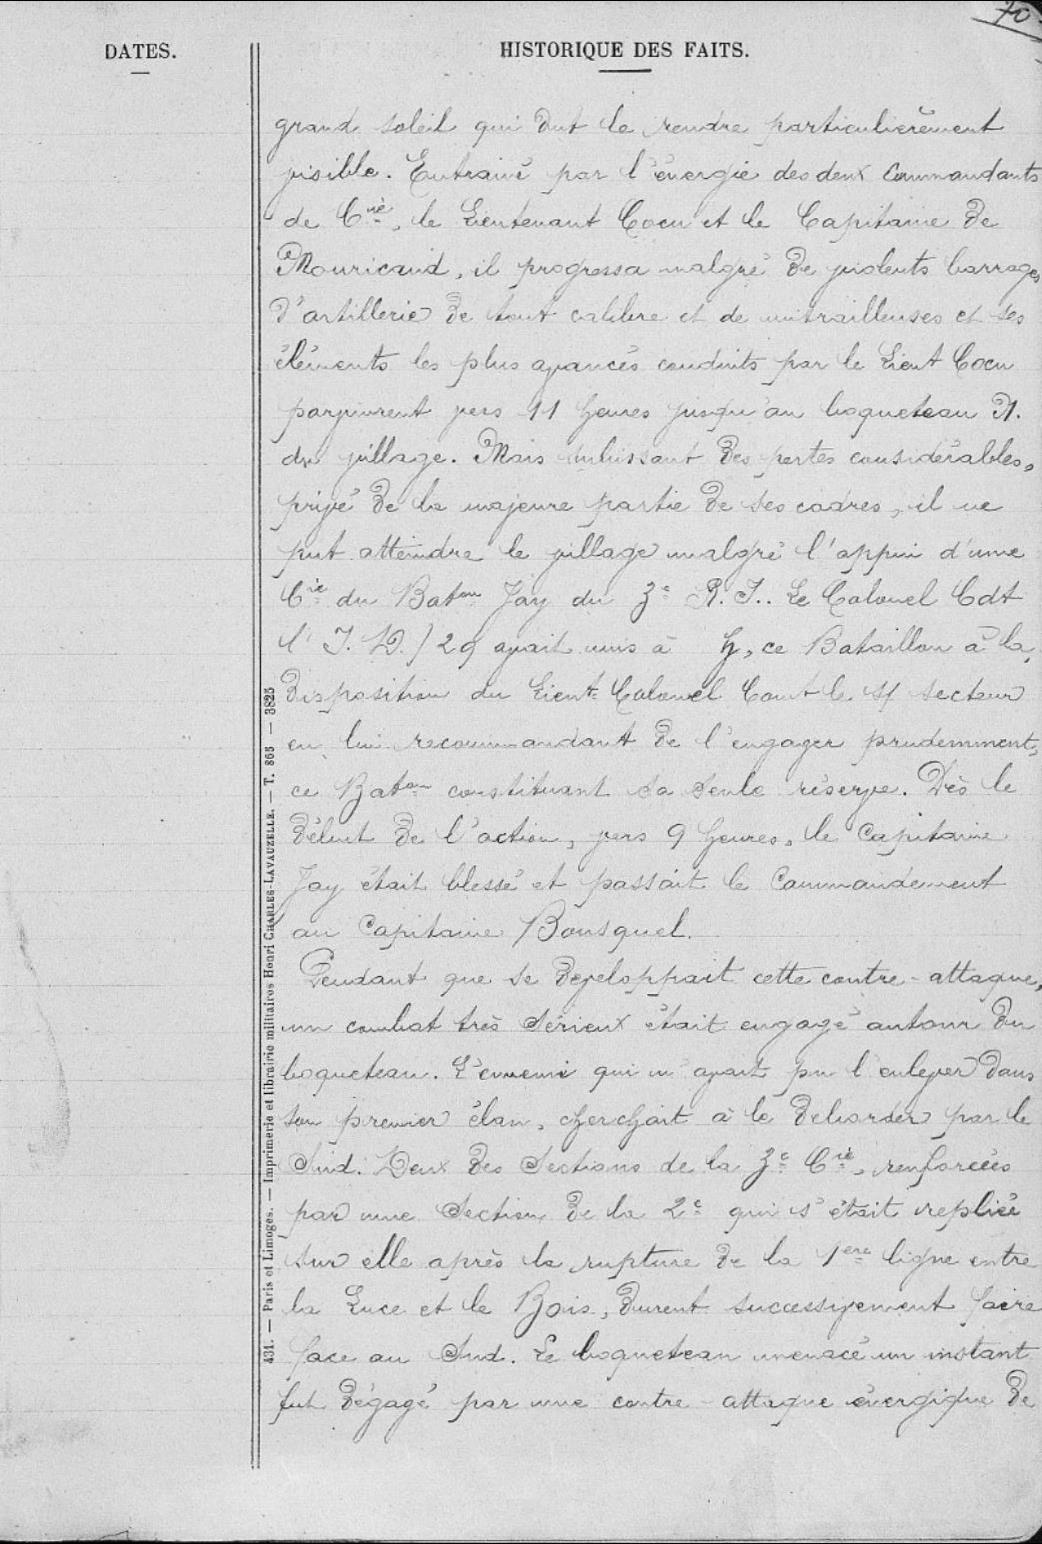 70
DATES.
HISTORIQUE DES FAITS.
grand soleil qui dut le rendre particulièrement
visible. Entrainé par l'énergie des deux Commandants
de Cie, le Lieutenant Cocu et le Capitaine de
Mouricaud, il progressa malgré de violents barrages
d'artillerie de tout calibre et de mitrailleuses et ses
éléments les plus avancés conduits par le Lieut Cocu
parvinrent vers 11 heures jusqu'au boqueteau N.
du village. Mais subissant des pertes considérables,
privé de la majeure partie de ses cadres, il ne
put atteindre le village malgré l'appui d'une
Cie du Baton Jay du 3e R.I.. Le Colonel Cdt
l'I.D./29 avait mis à h, ce Bataillon à la
disposition du Lieut-Colonel Comt le s/ secteur
en lui recommandant de l'engager prudemment,
ce Baton constituant sa seule réserve. Dès le
début de l'action, vers 9 heures, le Capitaine
Jay était blessé et passait le Commandement
au Capitaine Bousquel.
Pendant que se développait cette contre-attaque,
un combat très sérieux était engagé autour du
boqueteau. L'ennemi qui n'ayant pu l'enlever dans
son premier élan, cherchait à le déborder par le
Sud. Deux des Sections de la 3e Cie, renforcées
par une Section de la 2e qui s'était repliée
sur elle après la rupture de la 1ère ligne entre
la Luce et le Bois, durent successivement faire
face au Sud. Le boqueteau menacé un instant
fut dégagé par une contre-attaque énergique de
431. — Paris et Limoges. — Imprimerie et librairie militaires Henri CHARLES-LAVAUZELLE. — T. 865 — 3825